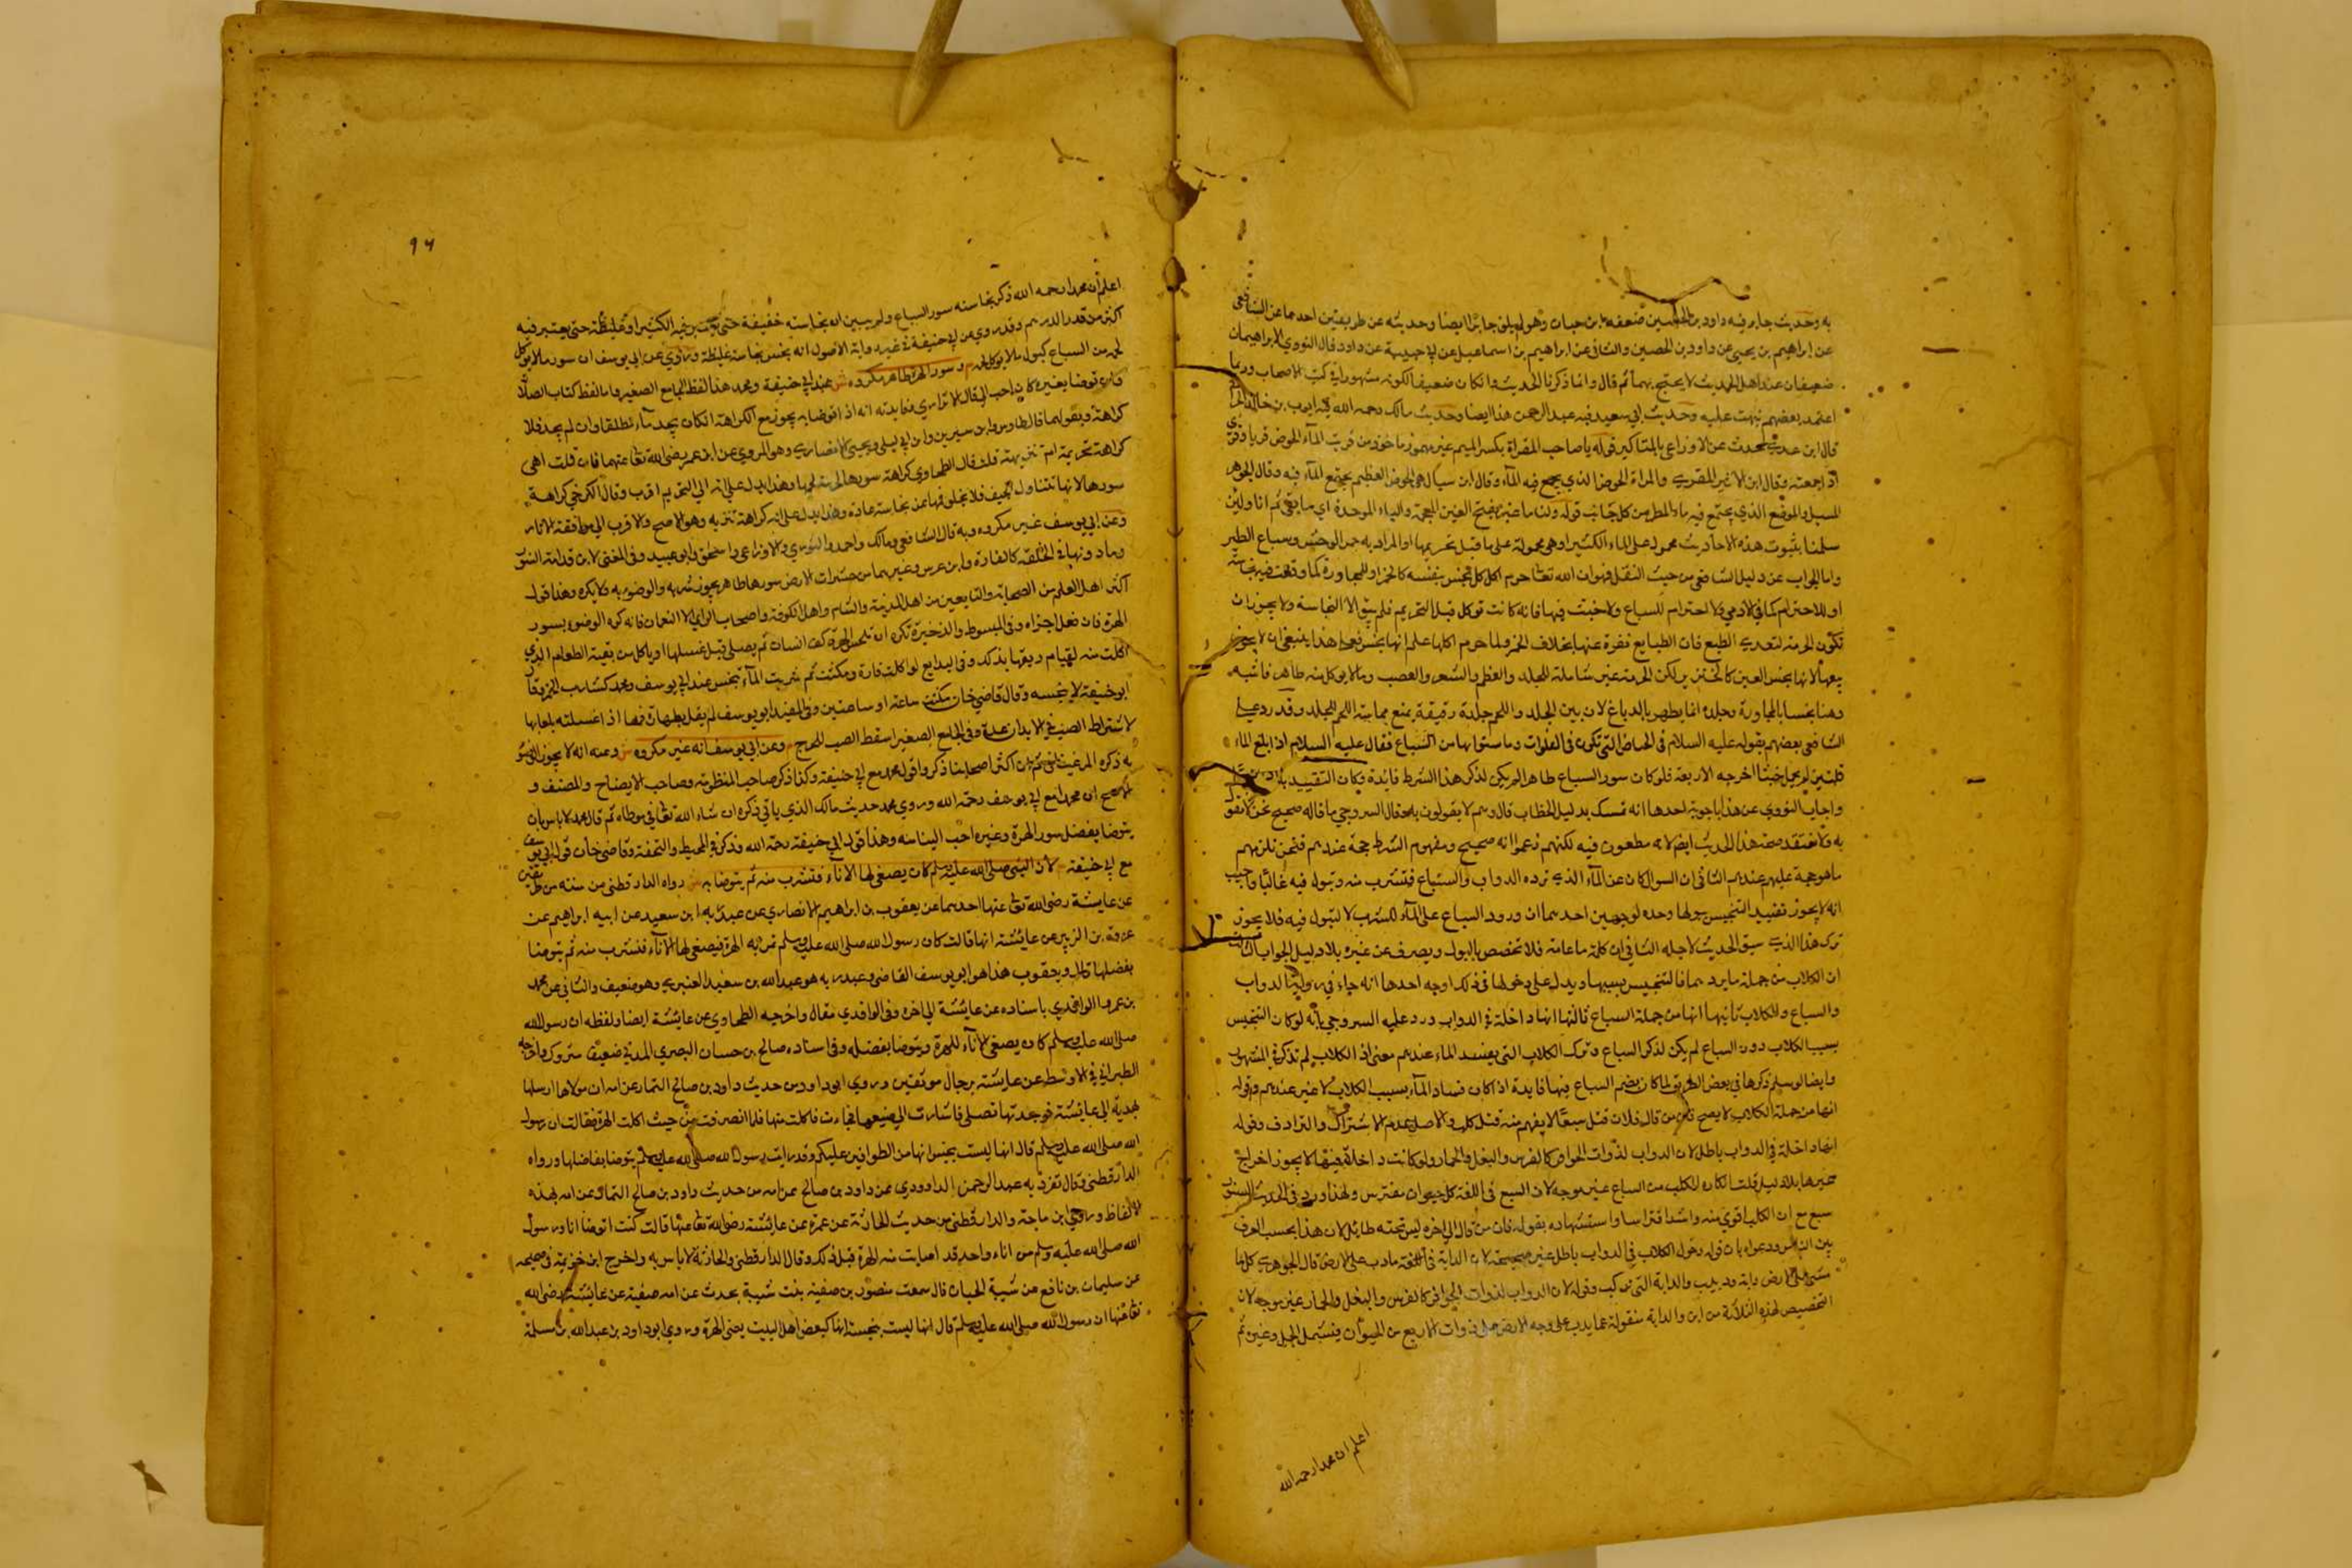 به وحديث جابر فيه داود بن الحصين ضعفه ابن حبان وهو لم يلق جابرا ايضا وحديثه عن طريقين احدهما عن الشافعي
عن ابراهيم بن يحيى عن داود بن الحصين والثاني عن ابراهيم بن اسماعيل عن ابي حبيبة عن داود قال النووي الابراهيمان
ضعيفان عند اهل الحديث لا يحتج بهما ثم قال وانما ذكرنا الحديث وان كان ضعيفا لكونه مشهورا في كتب الاصحاب وربما
اعتمد بعضهم فنبهت عليه وحديث ابي سعيد فيه عبد الرحمن هذا ايضا وحديث مالك رحمه الله فيه ايوب بن خالد الحراني
قال ابن عدي يحدث عن الاوزاعي بالمناكير قوله يا صاحب المقراة بكسر الميم غير مهموز ماخوذ من قريت الماء الحوض قريا وقرى
اذا جمعته وقال ابن الاثير المقرى والمقراة الحوض الذي يجمع فيه الماء وقال ابن سيده هي الحوض العظيم يجتمع الماء فيه وقال الجوهري
المسيل والموضع الذي يجتمع فيه ماء المطر من كل جانب قوله ولنا ما غبر بفتح الغين المعجمة والباء الموحدة اي ما بقي ثم انا ولئن
سلمنا بثبوت هذه الاحاديث محمول على الماء الكثير او هي محمولة على ما قبل تحريمها او المراد به حمر الوحش وسباع الطير
واما الجواب عن دليل الشافعي من حيث النقل فهو ان الله تعالى حرم اكل كل نجس بنفسه كالخنزير او للمجاورة كما وقعت فيه نجاسة
او للاحترام كما في الآدمي ولا احترام للسباع ولا خبث فيها فانه كانت توكل قبل التحريم فلم يبق الا النجاسة ولا يجوز ان
تكون الحرمة لتعدي الطبع فان الطبايع نفرة عنها بخلاف الخمر ولما حرم اكلها علم انها نجس فعلى هذا ينبغي ان لا يجوز
بيعها لانها نجس العين كالخنزير لكن الحرمة غير شاملة للجلد والعظم والشعر والعصب وما لا يوكل منه طاهر فاشبه
وهنا نجسا بالمجاورة وجلده انما يطهر بالدباغ لان بين الجلد واللحم جلدة رقيقة يمنع مماسة اللحم الجلد وقد رد على
الشافعي بعضهم بقوله عليه السلام في الحياض التي تكون في الفلوات وما ينوبها من السباع فقال عليه السلام اذا بلغ الماء
قلتين لم يحمل خبثا اخرجه الاربعة فلو كان سور السباع طاهرا لم يكن لذكر هذا الشرط فائدة وكان التقييد به
واجاب النووي عن هذا باجوبة احدها انه تمسك بدليل الخطاب قال وهم لا يقولون به وقال السروجي ما قاله صحيح نحن لا نقول
به ولا نعتقد صحة هذا الحديث ايضا لانه مطعون فيه لكنهم زعموا انه صحيح ومفهوم الشرط حجة عندهم فنحن نلزمهم
ما هو حجة عليهم عندهم الثاني ان السوال كان عن الماء الذي ترده الدواب والسباع فتشرب منه وتبول فيه غالبا واجيب
انه لا يجوز تقييد التنجيس ببولها وحده لوجهين احدهما ان ورود السباع على الماء للشرب لا لتبول فيه فلا يجوز
ترك هذا الذي سيق الحديث لاجله الثاني ان كلمة ما عامة فلا تخصص بالبول ويصرف عن غيره بلا دليل الجواب الثالث
ان الكلاب من جملة ما يرد بها فالتنجيس بسببها ويدل على دخولها في ذلك اوجه احدها انه جاء في رواية الدواب
والسباع والكلاب ثانيها انها من جملة السباع ثالثها انها داخلة في الدواب ورد عليه السروجي بانه لو كان التنجيس
بسبب الكلاب دون السباع لم يكن لذكر السباع وترك الكلاب التي يفسد الماء عندهم معنى اذ الكلاب لم تذكر في المشهور
وايضا لو سلم ذكرها في بعض الطرق لما كان بضم السباع فيها فايدة اذا كان فساد الماء بسبب الكلاب لا غير عندهم وقوله
انها من جملة الكلاب لا يصح فان من قال فلان قتل سبعا لا يفهم منه قتل كلب والاصل عدم الاشتراك والترادف وقوله
انها داخلة في الدواب باطل لان الدواب لذوات الحوافر كالفرس والبغل والحمار ولو كانت داخلة فيها لا يجوز اخراج
غيرها بلا دليل قلت انكاره الكلب من السباع غير موجه لان السبع في اللغة كل حيوان مفترس ولهذا ورد في الحديث السنور
سبع مع ان الكلب اقوى منه واشد افتراسا واستشهاده بقوله فان من قال الى اخره ليس تحته طائل لان هذا بحسب العرف
بين الناس ودعواه بان قوله دخول الكلاب في الدواب باطل غير صحيحة لان الدابة في اللغة ما دب على الارض قال الجوهري كل ما
مشى على الارض دابة ودبيب والدابة التي تركب وقوله لان الدواب لذوات الحوافر كالفرس والبغل والحمار غير موجه لان
التخصيص لهذه الثلاثة من اين والدابة منقولة عما يدب على وجه الارض على ذوات الاربع من الحيوان فيشمل الجمل وغيره ثم
اعلم ان محمدا رحمه الله
٩٦
اعلم ان محمدا رحمه الله ذكر نجاسة سور السباع ولم يبين ان نجاسته خفيفة حتى يعتبر فيه الكثير او غليظة حتى يعتبر فيه
اكثر من قدر الدرهم وقد روي عن ابي حنيفة في غير رواية الاصول انه نجس نجاسة غليظة وروي عن ابي يوسف ان سور ما لا يوكل
لحمه من السباع كبول ما لا يوكل لحمه م وسور الهرة طاهر مكروه ش عند ابي حنيفة ومحمد هذا لفظ الجامع الصغير واما لفظ كتاب الصلاة
وان توضا بغيره كان احب الي قال الاترازي فايدته انه اذا توضا به يجوز مع الكراهة ان كان يجد ماء مطلقا وان لم يجد فلا
كراهة وبقولهما قال طاوس وابن سيرين وابن ابي ليلى ويحيى الانصاري وهو المروي عن ابن عمر رضي الله تعالى عنهما فان قلت اهي
كراهة تحريمة ام تنزيهة قلت قال الطحاوي كراهة سورها لحرمة لحمها وهذا يدل على انه الى التحريم اقرب وقال الكرخي كراهة
سورها لانها تتناول الجيف فلا يخلو فمها عن نجاسة عادة وهذا يدل على انه كراهة تنزيه وهو الاصح والاقرب الى موافقة الاثار
وعن ابي يوسف غير مكروه وبه قال الشافعي ومالك واحمد والثوري والاوزاعي واسحق وابو عبيد وفي المغني لابن قدامة السنور
وما دونها في الخلقة كالفارة وابن عرس وغيرهما من حشرات الارض سورها طاهر يجوز شربه والوضوء به ولا يكره وهذا قول
اكثر اهل العلم من الصحابة والتابعين من اهل المدينة والشام واهل الكوفة واصحاب الراي الا النعمان فانه كره الوضوء بسور
الهرة فان فعل اجزاه وفي المبسوط والذخيرة تكره ان تلحس الهرة كف انسان ثم يصلي قبل غسلها او ياكل من بقية الطعام الذي
اكلت منه لقيام ريقها بذلك وفي البدايع لو اكلت فارة ومكثت ثم شربت الماء تنجس عند ابي يوسف ومحمد كشارب الخمر وقال
ابو حنيفة لا ينجسه وقال قاضي خان مكثت ساعة او ساعتين وفي المفيد ابو يوسف لم يقل بطهارة فمها اذا غسلته بلعابها
لاشتراط الصب في الابدان عنده وفي الجامع الصغير اسقط الصب للحرج م وعن ابي يوسف انه غير مكروه ش وعنه انه لا يجوز التوضو
به ذكره المرغيناني ثم ان اكثر اصحابنا ذكروا قول محمد مع ابي حنيفة وكذا ذكر صاحب المنظومة وصاحب الايضاح والمصنف و
الاصح ان محمدا مع ابي يوسف رحمه الله وروي محمد حديث مالك الذي ياتي ذكره ان شاء الله تعالى في موطاه ثم قال محمد لا باس بان
يتوضا بفضل سور الهرة وغيره احب الينا منه وهذا قول ابي حنيفة رحمه الله وذكر في المحيط والتحفة وقاضي خان قول ابي يوسف
مع ابي حنيفة م لان النبي صلى الله عليه وسلم كان يصغي لها الاناء فتشرب منه ثم يتوضا به ش رواه الدارقطني من سننه من طريقين
عن عايشة رضي الله تعالى عنها احدهما عن يعقوب بن ابراهيم الانصاري عن عبد ربه ابن سعيد عن ابيه ابراهيم عن
عروة بن الزبير عن عايشة انها قالت كان رسول الله صلى الله عليه وسلم تمر به الهرة فيصغي لها الاناء فتشرب منه ثم يتوضا
بفضلها قال ويعقوب هذا هو ابو يوسف القاضي وعبد ربه هو عبد الله بن سعيد المقبري وهو ضعيف والثاني عن محمد
بن عمر الواقدي باسناده عن عايشة الى اخره وفي الواقدي مقال واخرجه الطحاوي عن عايشة ايضا ولفظه ان رسول الله
صلى الله عليه وسلم كان يصغي الاناء للهرة ويتوضا بفضله وفي اسناده صالح بن حسان البصري المديني ضعيف متروك واخرجه
الطبراني في الاوسط عن عايشة برجال موثقين وروي ابو داود من حديث داود بن صالح التمار عن امه ان مولاها ارسلها
بهدية الى عايشة فوجدتها تصلي فاشارت الي ضعيها فجاءت فاكلت منها فلما انصرفت من حيث اكلت الهرة فقالت ان رسول
الله صلى الله عليه وسلم قال انها ليست بنجس انها من الطوافين عليكم وقد رايت رسول الله صلى الله عليه وسلم يتوضا بفاضلها ورواه
الدارقطني وقال تفرد به عبد الرحمن الداوودي عن داود بن صالح عن امه من حديث داود بن صالح التمار عن امه بهذه
الالفاظ وروى ابن ماجة والدارقطني من حديث الحارثة عن عمرة عن عايشة رضي الله تعالى عنها قالت كنت اتوضا انا ورسول
الله صلى الله عليه وسلم من اناء واحد قد اصابت منه الهرة قبل ذلك وقال الدارقطني والحارثة لا باس به واخرج ابن خزيمة في صحيحه
عن سليمان بن نافع من شيبة الحجبان قال سمعت منصور بن صفية بنت شيبة يحدث عن امه صفية عن عايشة رضي الله
تعالى عنها ان رسول الله صلى الله عليه وسلم قال انها ليست بنجسة انها كبعض اهل البيت يعني الهرة وروي ابو داود بن عبد الله بن مسلمة